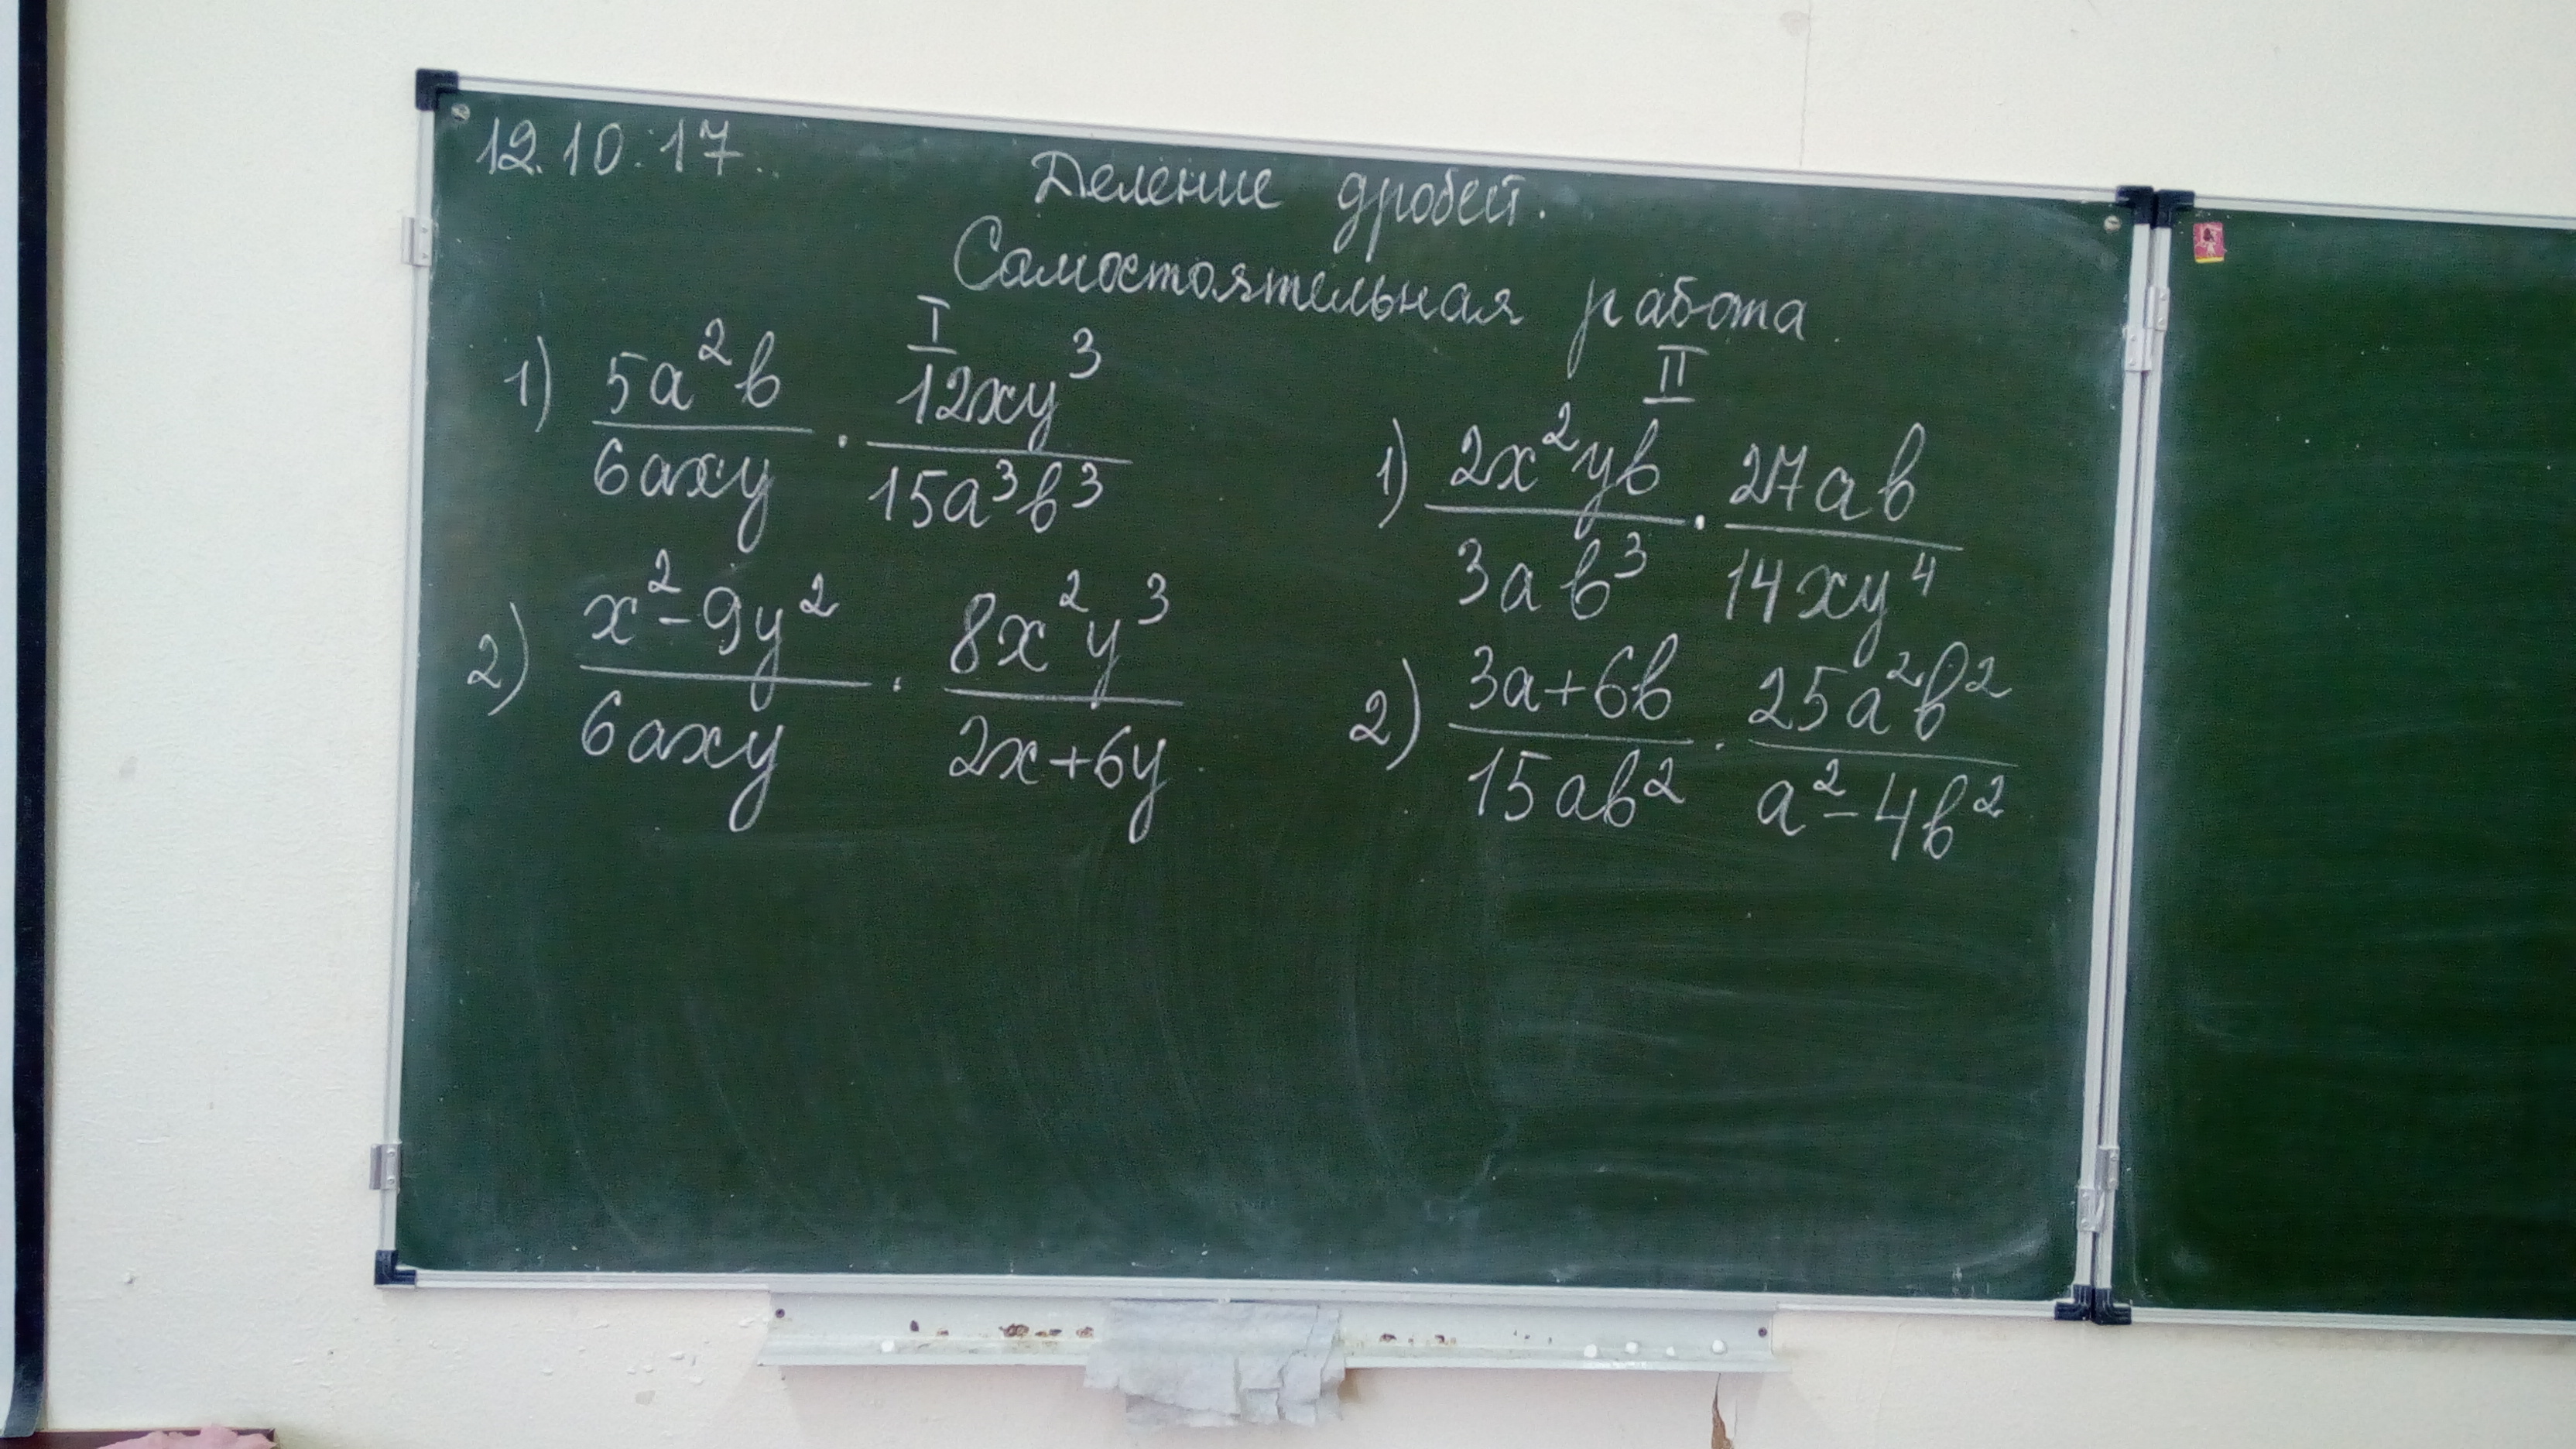 12.10.17.
Деление дробей.
Самостоятельная работа
I
1) 5a²b/6axy · 12xy³/15a³b³
2) x²-9y²/6axy · 8x²y³/2x+6y
II
1) 2x²yb/3ab³ · 27ab/14xy⁴
2) 3a+6b/15ab² · 25a²b²/a²-4b²